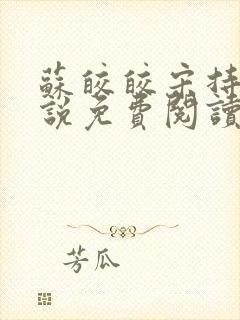 蘇皎皎宋持
說免費閱讀
芳瓜